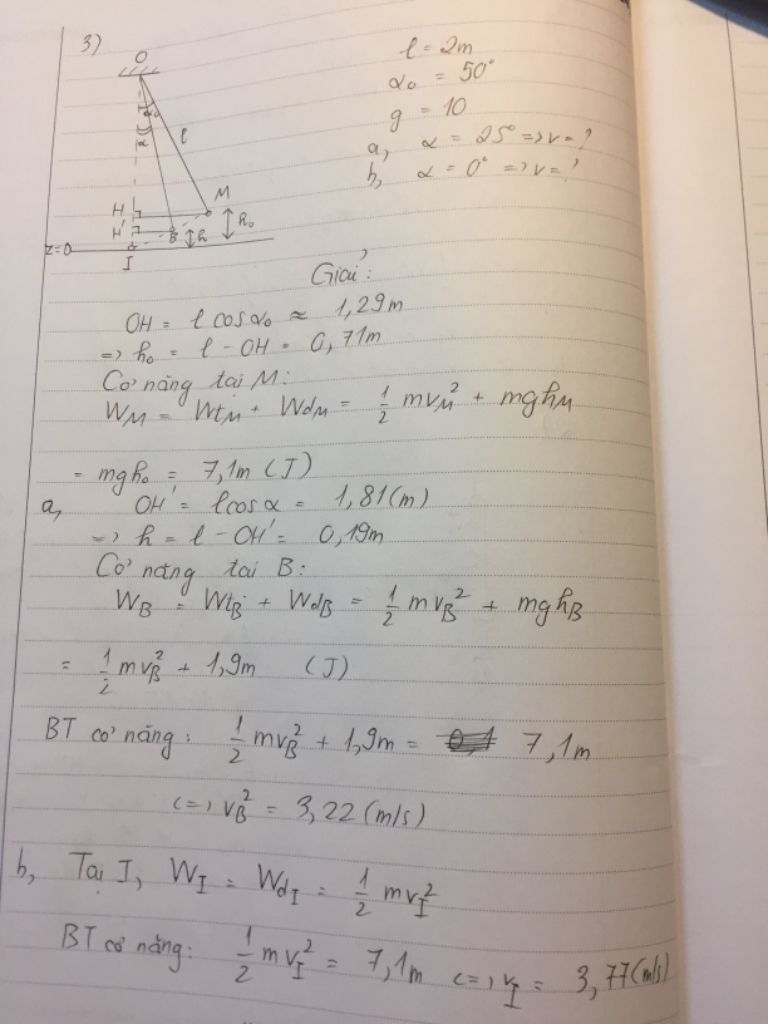 3)
l = 2m
α₀ = 50°
g = 10
a, α = 25° => v = ?
b, α = 0° => v = ?
O
α₀
α
l
M
H
H'
B
h
h₀
z=0
I
Giải:
OH = l cos α₀ ≈ 1,29m
=> h₀ = l - OH = 0,71m
Cơ năng tại M:
W_M = Wt_M + Wđ_M = 1/2 mv_M² + mgh_M
= mgh₀ = 7,1m (J)
a, OH' = l cos α = 1,81(m)
=> h = l - OH' = 0,19m
Cơ năng tại B:
W_B = Wt_B + Wđ_B = 1/2 mv_B² + mgh_B
= 1/2 mv_B² + 1,9m (J)
BT cơ năng: 1/2 mv_B² + 1,9m = 7,1m
<=> v_B² = 3,22 (m/s)
b, Tại I, W_I = W_dI = 1/2 mv_I²
BT cơ năng: 1/2 mv_I² = 7,1m <=> v_I = 3,77(m/s)